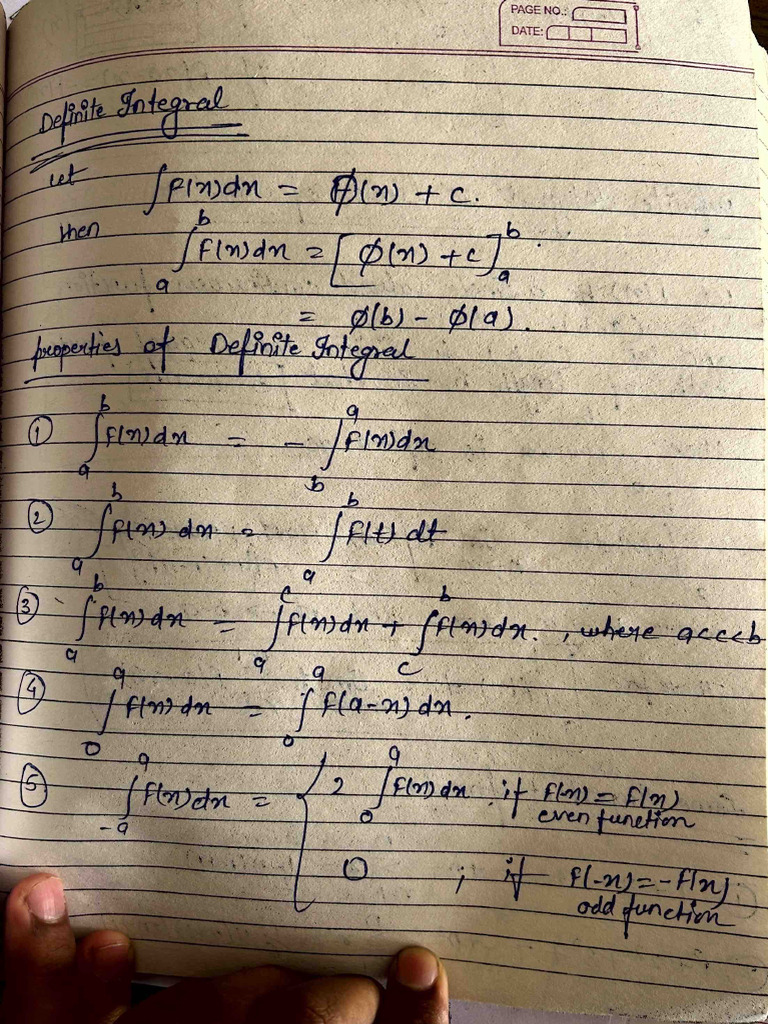 PAGE NO.:
DATE:
Definite Integral
let ∫f(x)dx = φ(x) + c.
then ∫_a^b f(x)dx = [φ(x) + c]_a^b.
= φ(b) - φ(a).
properties of Definite Integral
① ∫_a^b f(x)dx = - ∫_b^a f(x)dx
② ∫_a^b f(x) dx = ∫_a^b f(t) dt
③ ∫_a^b f(x)dx = ∫_a^c f(x)dx + ∫_c^b f(x)dx. , where a<c<b
④ ∫_0^a f(x) dx = ∫_0^a f(a-x) dx.
⑤ ∫_{-a}^a f(x)dx = { 2 ∫_0^a f(x)dx, if f(-x) = f(x)
even function
0 ; if f(-x) = -f(x).
odd function